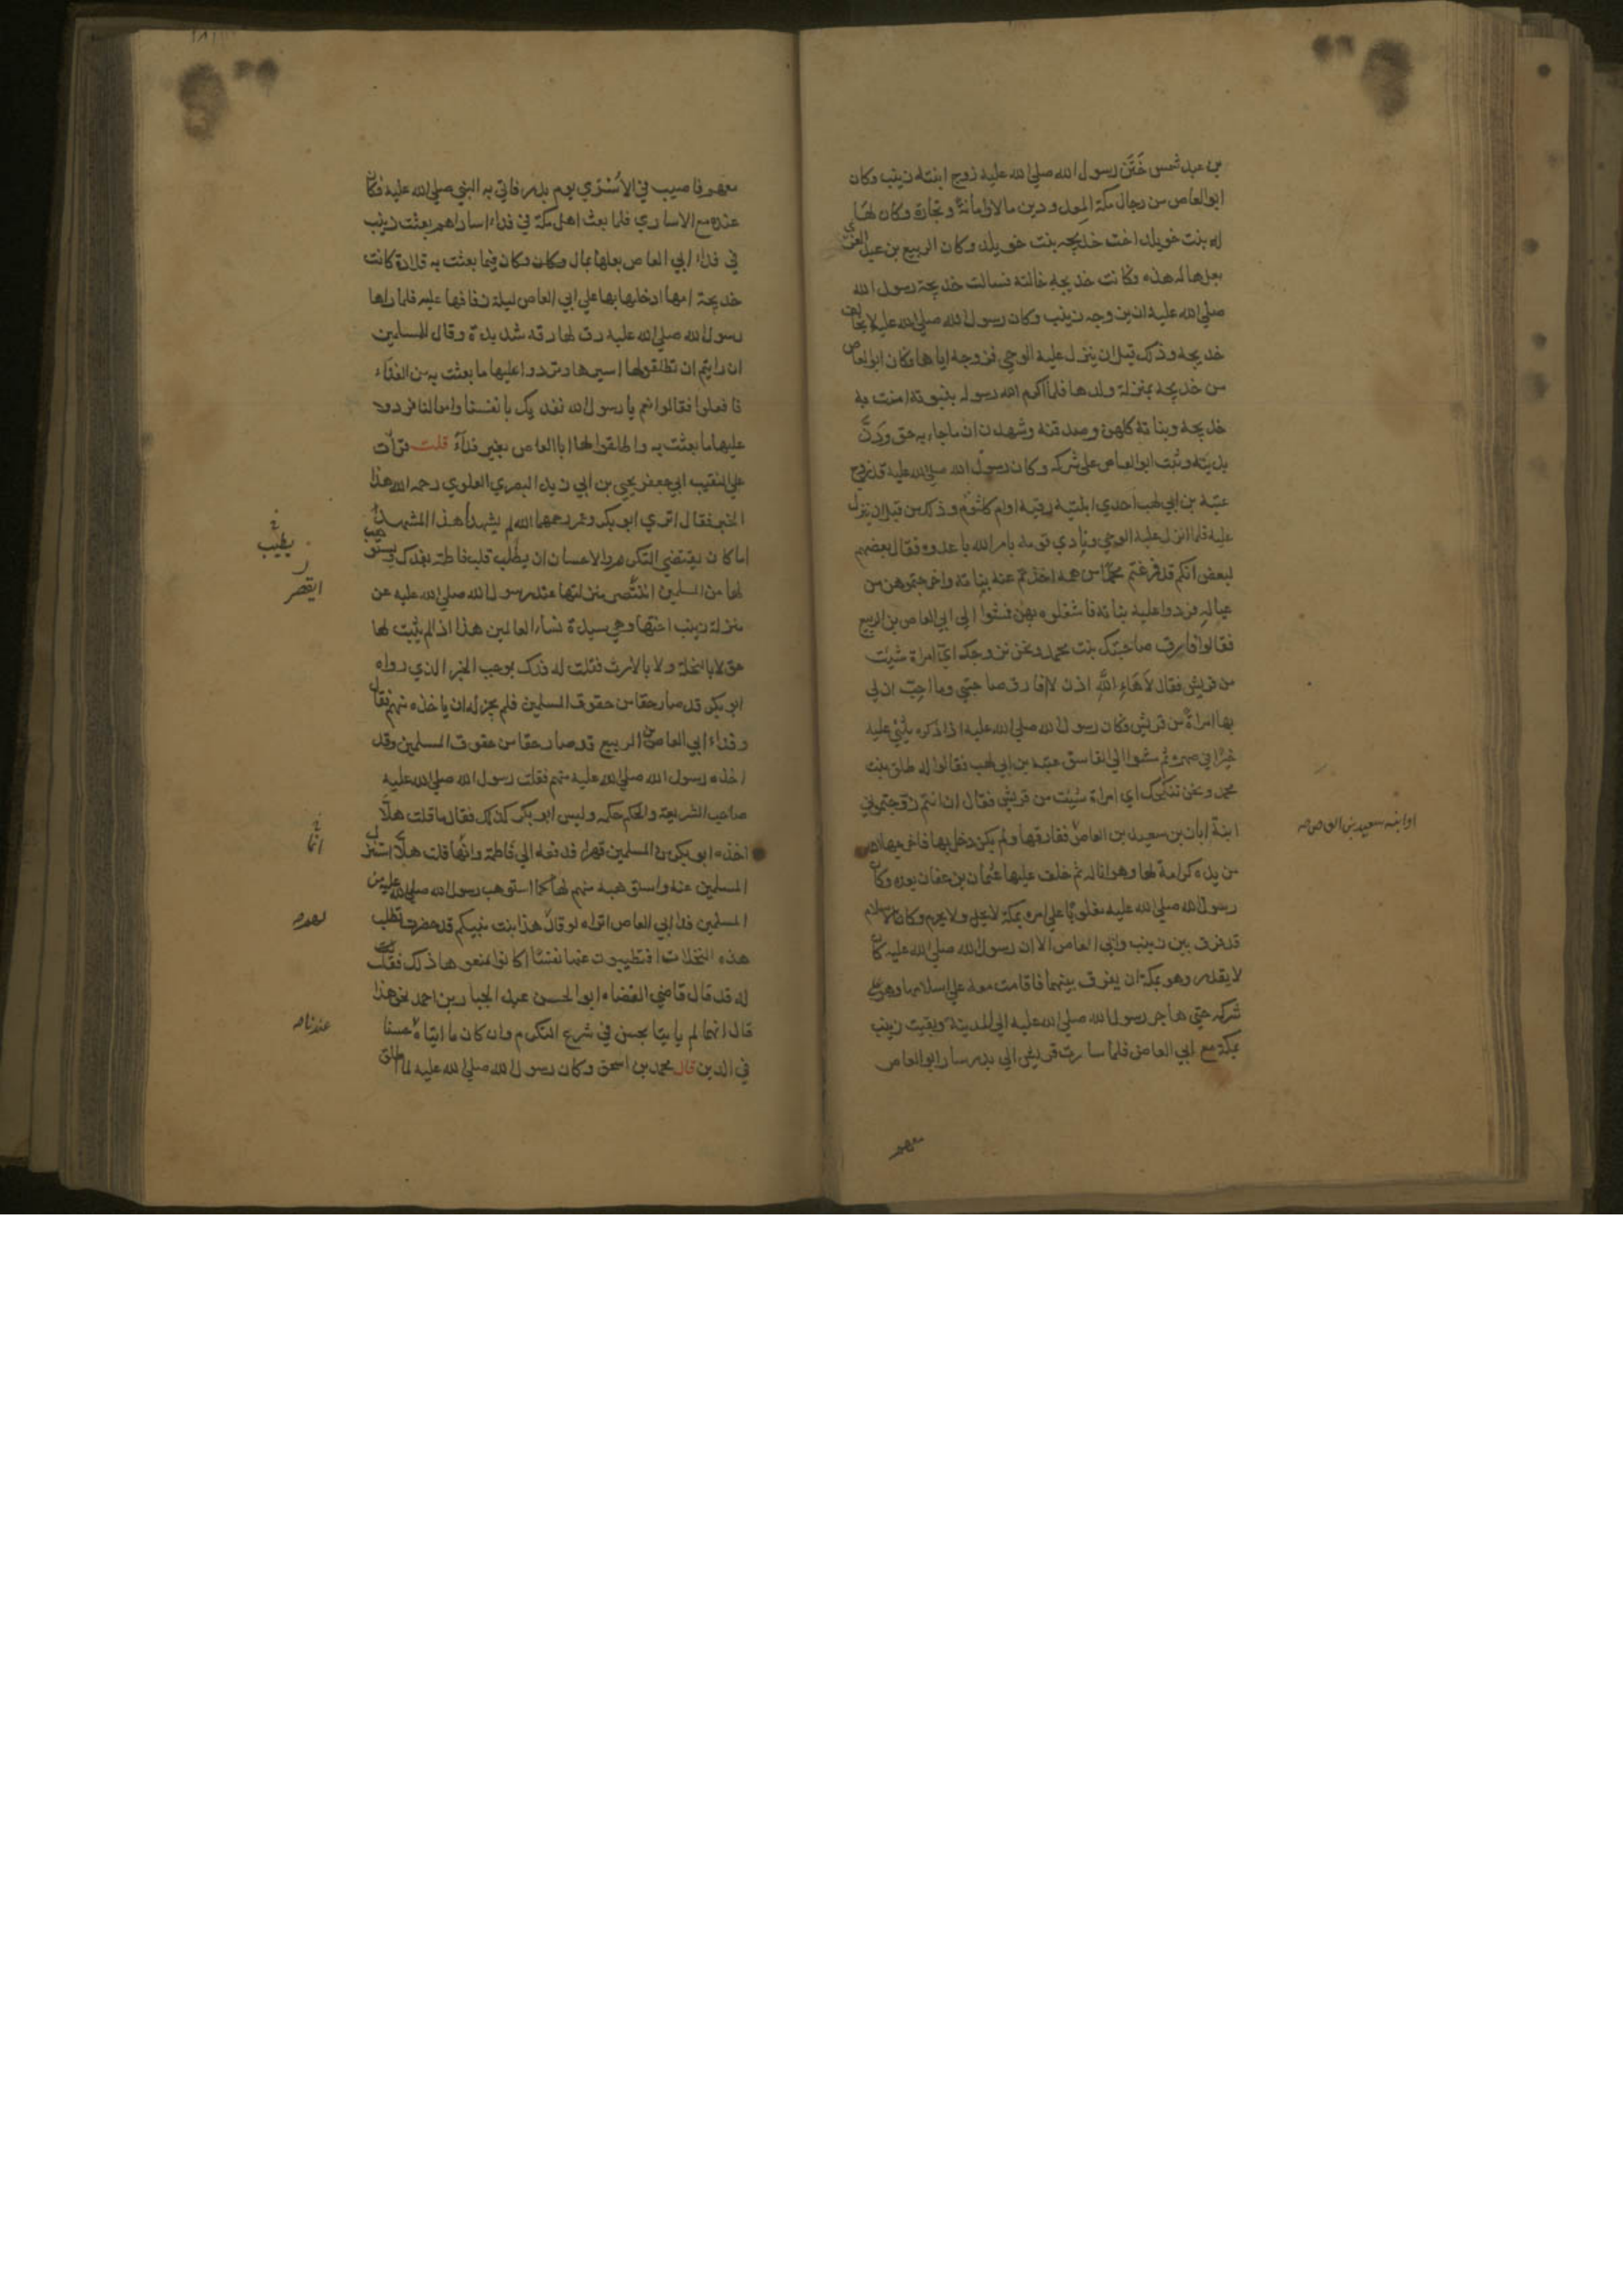 بن عبد شمس خَتَن رسول الله صلي الله عليه زوج ابنته زينب وكان
ابو العاص من رجال مكة المعدودين مالا وامانة وتجارة وكان
له بنت خويلد اخت خديجه بنت خويلد وكان الربيع بن عبد العزي
بعل هاله هذه وكانت خديجه خالته فسالت خديجة رسول الله
صلي الله عليه ان يزوجه زينب وكان رسول الله صلي الله عليه لا يخالف
خديجه وذلك قبل ان ينزل عليه الوحي فزوجه اياها فكان ابو العاص
من خديجه بمنزلة ولدها فلما اكرم الله رسوله بنبوته امنت به
خديجه وبناته كلهن وصدقنه وشهدن ان ما جاء به حق ودنّ
بدينه وثبت ابو العاص علي شركه وكان رسول الله صلي الله عليه قد زوج
عتبة بن ابي لهب احدي ابنتيه رقية او ام كلثوم وذلك من قبل ان ينزل
عليه فلما انزل عليه الوحي ونادي قومه بامر الله باعدوه فقال بعضهم
لبعض انكم قد فرغتم محمدا من همه اخذتم عنه بناته واخرجتموهن من
عياله فردوا عليه بناته فاشغلوه بهن فمشوا الي ابي العاص بن الربيع
فقالوا فارق صاحبتك بنت محمد ونحن نزوجك اي امراة شيت
من قريش فقال لاهاء الله اذن لا افارق صاحبتي وما احب ان لي
بها امراة من قريش فكان رسول الله صلي الله عليه اذا ذكره يثني عليه
خيرا في صهره ثم مشوا الي الفاسق عتبه بن ابي لهب فقالوا له طلق بنت
محمد ونحن ننكحك اي امراة شيت من قريش فقال ان انتم زوجتموني
ابنة ابان بن سعيد بن العاص ففارقها ولم يكن دخل بها فاخرجها الله
من يده كرامة لها وهوانا له ثم خلف عليها عثمان بن عفان بعده وكان
رسول الله صلي الله عليه مغلوبا علي امره بمكة لا يحل ولا يحرم وكان الاسلام
قد فرق بين زينب وابي العاص الا ان رسول الله صلي الله عليه كان
لا يقدر وهو بمكة ان يفرق بينهما فاقامت معه علي اسلامها وهو علي
شركه حتي هاجر رسول الله صلي الله عليه الي المدينة وبقيت زينب
بمكة مع ابي العاص فلما سارت قريش الي بدر سار ابو العاص
معهم
او ابنه سعيد بن العاص صح
معهم فاصيب في الاسري يوم بدر فاتي به النبي صلي الله عليه فكان
عنده مع الاساري فلما بعث اهل مكة في فداء اساراهم بعثت زينب
في فداء ابي العاص بعلها بمال وكان فيما بعثت به قلادة كانت
خديجة امها ادخلتها بها علي ابي العاص ليلة زفافها عليه فلما راها
رسول الله صلي الله عليه رق لها رقه شديدة وقال للمسلمين
ان رايتم ان تطلقوا لها اسيرها وتردوا عليها ما بعثت به من الفداء
فافعلوا فقالوا نعم يا رسول الله نفديك بانفسنا واموالنا فردوا
عليها ما بعثت به واطلقوا لها ابا العاص بغير فداء قلت قرات
علي النقيب ابي جعفر يحيي بن ابي زيد البصري العلوي رحمه الله هذا
الخبر فقال اتري ابو بكر وعمر رحمهما الله لم يشهدا هذا المشهد
اما كان يقتضي التكرم والاحسان ان يطلب قلب فاطمة بفدك ويستوهب
لها من المسلمين اتقصر منزلتها عند رسول الله صلي الله عليه عن
منزلة زينب اختها وهي سيدة نساء العالمين هذا اذا لم يثبت لها
حق لا بالنحلة ولا بالارث فقلت له فدك بموجب الخبر الذي رواه
ابو بكر قد صار حقا من حقوق المسلمين فلم يجز له ان ياخذه منهم فقال
وفداء ابي العاص بن الربيع قد صار حقا من حقوق المسلمين وقد
اخذه رسول الله صلي الله عليه منهم فقلت رسول الله صلي الله عليه
صاحب الشريعة والحكم حكمه وليس ابو بكر كذلك فقال ما قلت هلّا
اخذه ابو بكر من المسلمين قهرا فدفعه الي فاطمة وانما قلت هلّا استنزل
المسلمين عنه واستوهبه منهم لها كما استوهب رسول الله صلي الله عليه من
المسلمين فدا ابي العاص اتراه لو قال هذا بنت نبيكم قد حضرت تطلب
هذه النخلات افتطيبون عنها نفسا اكانوا منعوها ذلك فقلت
له قد قال قاضي القضاه ابو الحسن عبد الجبار بن احمد نحو هذا
قال انهما لم ياتيا بحسن في شرع التكرم وان كان ما اتياه حسنا
في الدين قال محمد بن اسحق وكان رسول الله صلي الله عليه لما اطلق
يطيب
انما